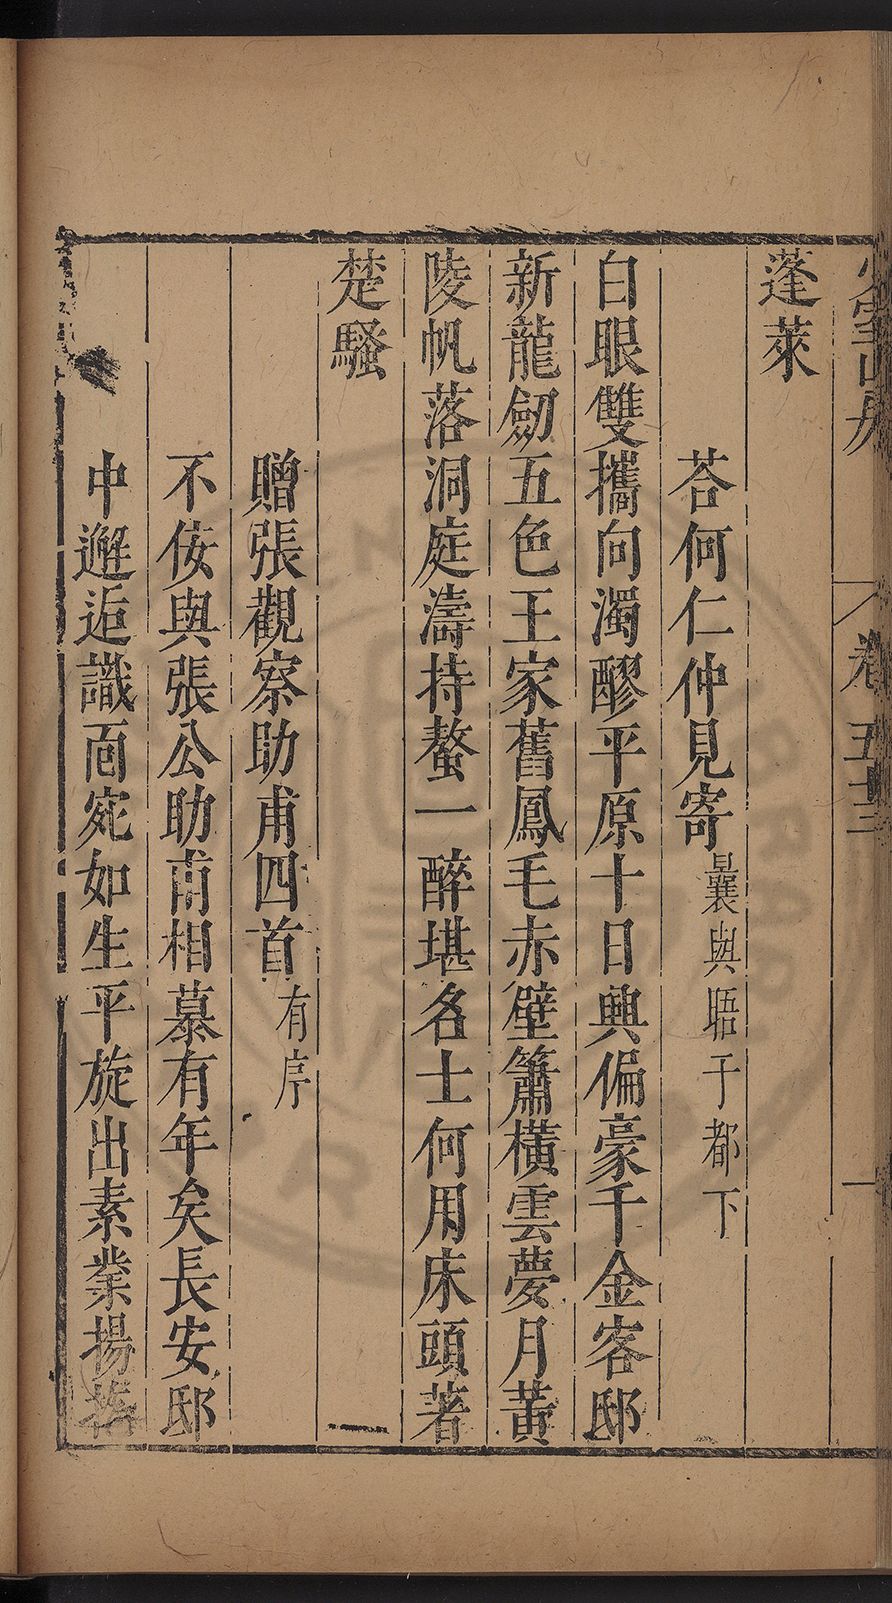 少室山房
卷五十三
一
蓬萊
荅何仁仲見寄曩與晤于都下
白眼雙攜向濁醪平原十日興偏豪千金客邸
新龍劒五色王家舊鳳毛赤壁簫橫雲夢月黃
陵帆落洞庭濤持螯一醉堪名士何用床頭著
楚騷
贈張觀察助甫四首有序
不佞與張公助甫相慕有年矣長安邸
中邂逅識面宛如生平旋出素業揚